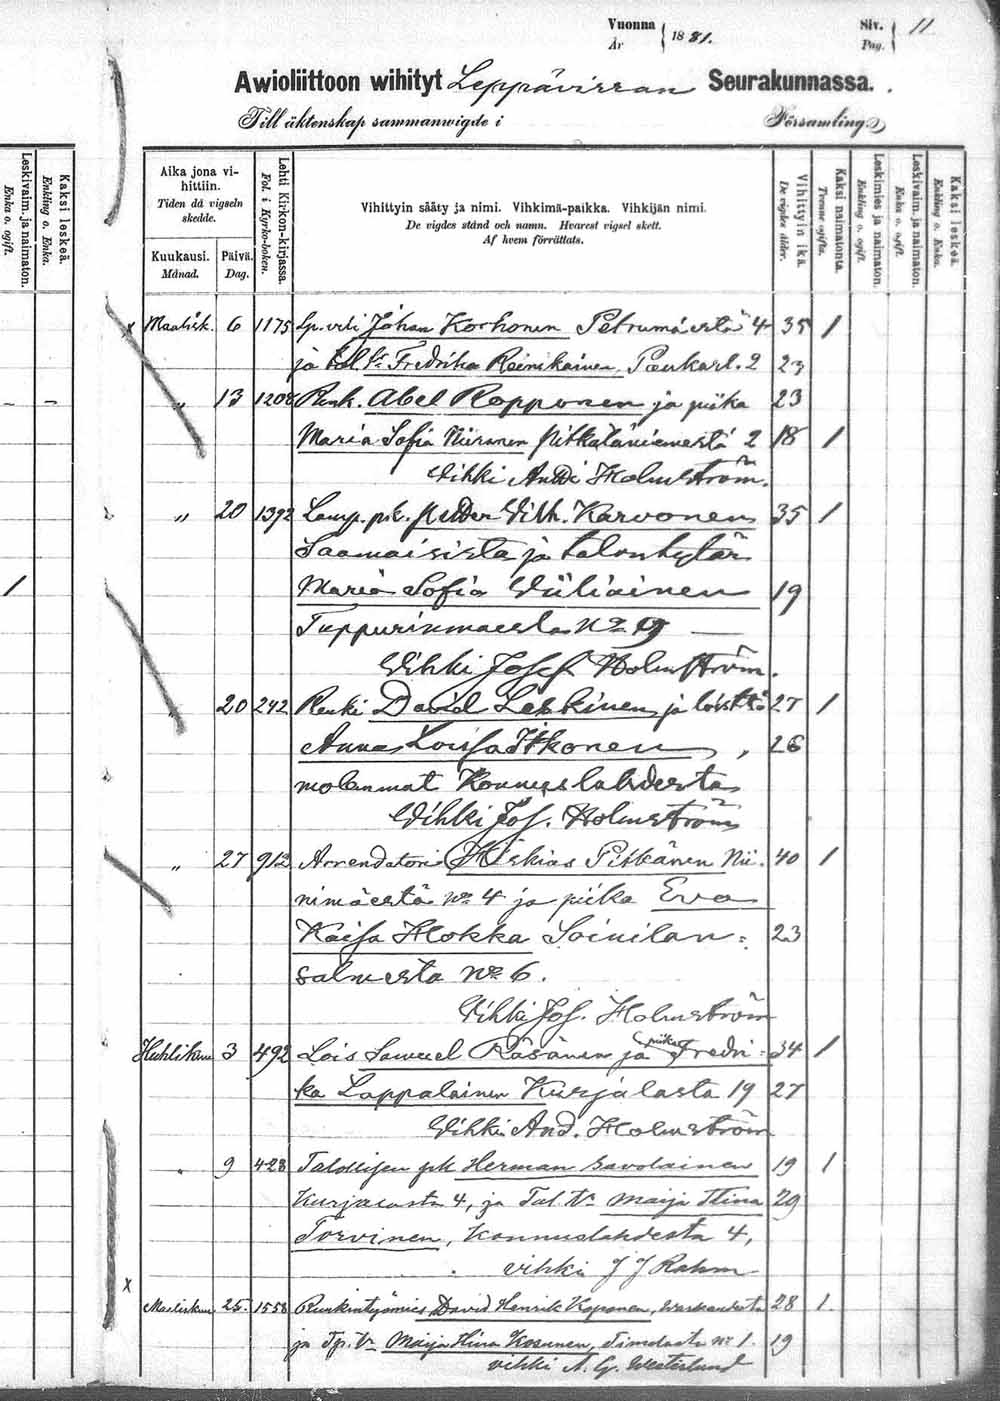 Vuonna 1881. Siv. 11
År Pag.
Awioliittoon wihityt Leppävirran Seurakunnassa.
Till äktenskap sammanwigde i Församling
Aika jona vihittiin.
Tiden då vigseln skedde.
Kuukausi. Månad.
Päivä. Dag.
Lehti Kirkon-kirjassa.
Fol. i Kyrko-boken.
Vihittyin sääty ja nimi. Vihkimä-paikka. Vihkijän nimi.
De vigdes stånd och namn. Hvarest vigsel skett.
Af hvem förrättats.
Vihittyin ikä.
De vigdes ålder.
Kaksi naimatonta.
Tvenne ogifta.
Leskimies ja naimaton.
Enkling o. ogift.
Leskivaim. ja naimaton.
Enka o. ogift.
Kaksi leskeä.
Enkling o. Enka.
Leskivaim. ja naimaton.
Enka o. ogift.
Kaksi leskeä.
Enkling o. Enka.
Maalisk. 6 1175 Johan Korhonen Petrumäestä 4 35 1
ja Fredrika Reinikainen 2 23
" 13 1208 Renk. Abel Ropponen ja piika 23
Maria Sofia Niiranen Pitkäläniemestä 2 18 1
Vihki Antti Holmström.
" 20 1392 Lamp. Vilh. Karvonen 35 1
Saamaisista ja talontytär
Maria Sofia Väliainen 19
Tuppurinmaesta No 19
Vihki Josef Holmström.
" 20 242 Renki David Leskinen ja 27 1
Anna Lovisa Itkonen, 26
molemmat Konnuslahdesta
Vihki Jos. Holmström
" 27 912 Arrendatori Hiskias Pitkänen Nii- 40 1
nimäestä No 4 ja piika Eva
Kaisa Hokka Soinilan= 23
salmesta No 6.
Vihki Jos. Holmström
Huhtikuu 3 492 Lois Samuel Räsänen ja piika Fredri= 34 1
ka Lappalainen Kurjalasta 19 27
Vihki And. Holmström
" 9 428 Talollisen pk Herman Savolainen 19 1
4, ja Tal. tr Maija Stina 29
Torvinen, Konnuslahdesta 4,
vihki J J Rahm
x Maaliskuu 25. 1558 David Henrik Koponen, Warkaudesta 28 1.
ja Maija Stina Kosunen, Timolasta No 1. 19
vihki A. G. Westerlund